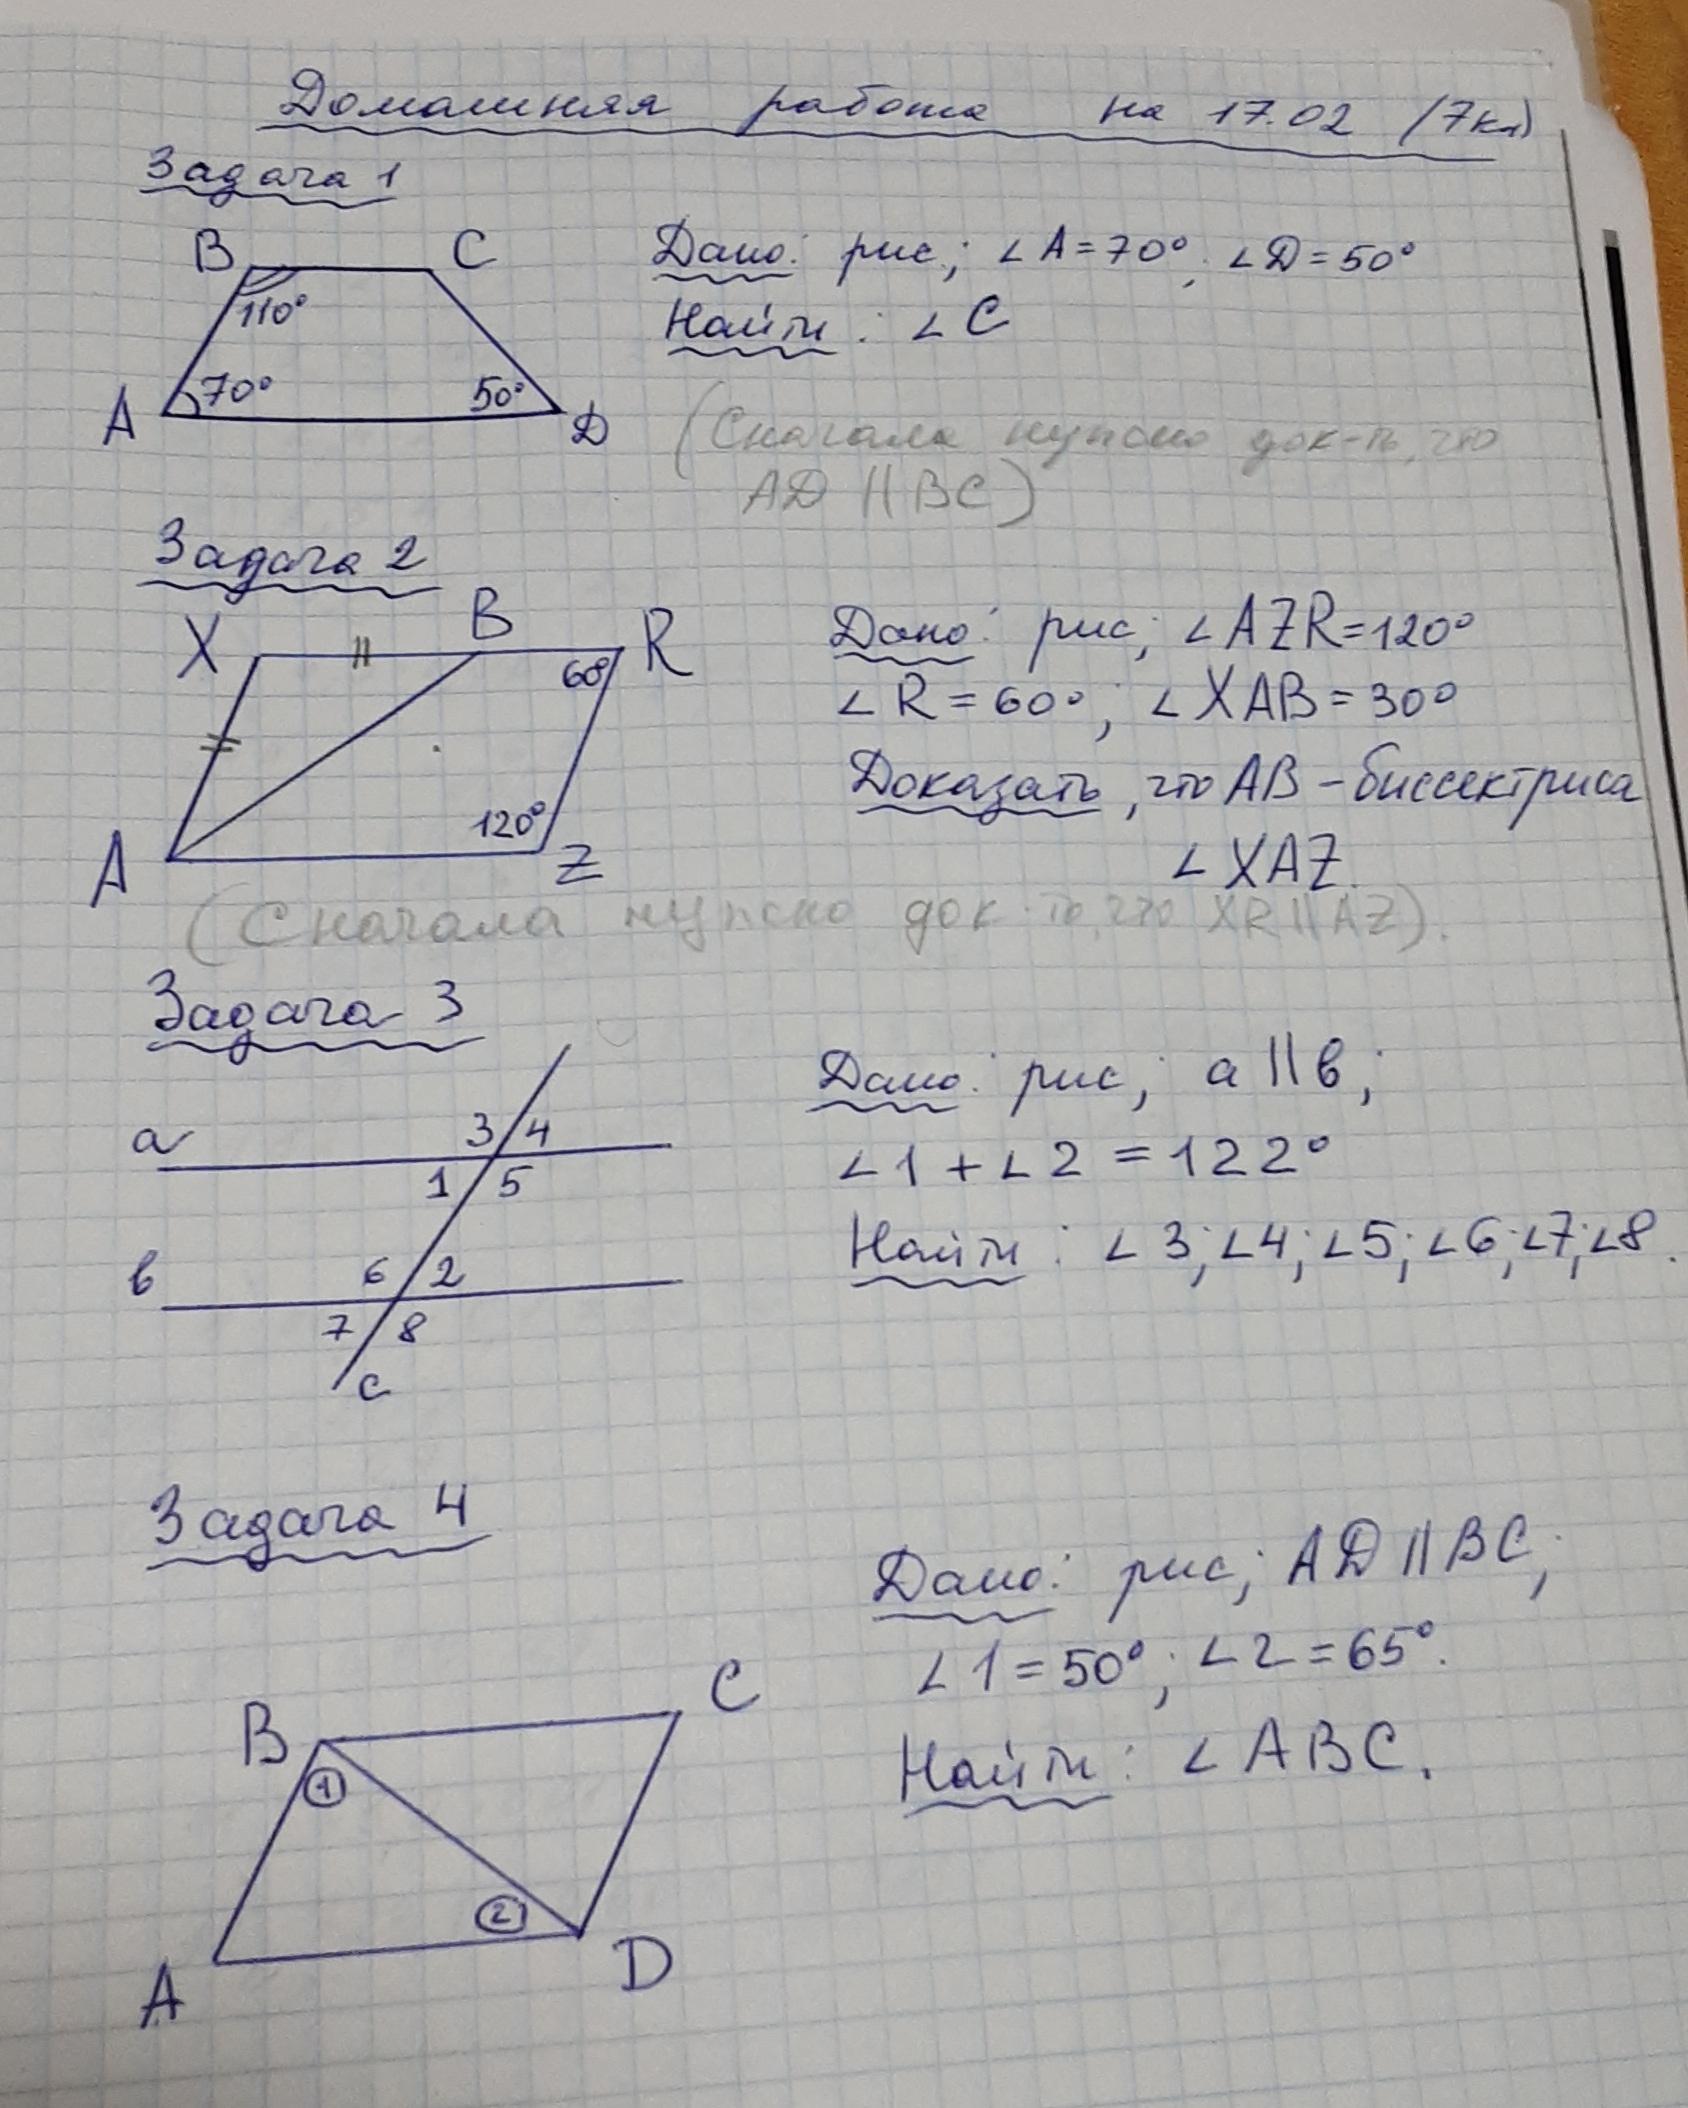 Домашняя работа на 17.02 (7кл)
Задача 1
B C
110°
70° 50°
A D
Дано: рис.; ∠A=70°; ∠D=50°
Найти: ∠C
(Сначала нужно док-ть, что
AD || BC)
Задача 2
X B R
60°
120°
A Z
Дано: рис; ∠AZR=120°
∠R=60°; ∠XAB=30°
Доказать, что AB - биссектриса
∠XAZ.
(Сначала нужно док-ть, что XR || AZ).
Задача 3
a 3 4
1 5
в 6 2
7 8
c
Дано: рис; a || в;
∠1 + ∠2 = 122°
Найти: ∠3; ∠4; ∠5; ∠6; ∠7; ∠8.
Задача 4
B C
1
2
A D
Дано: рис; AD || BC;
∠1=50°; ∠2=65°.
Найти: ∠ABC.